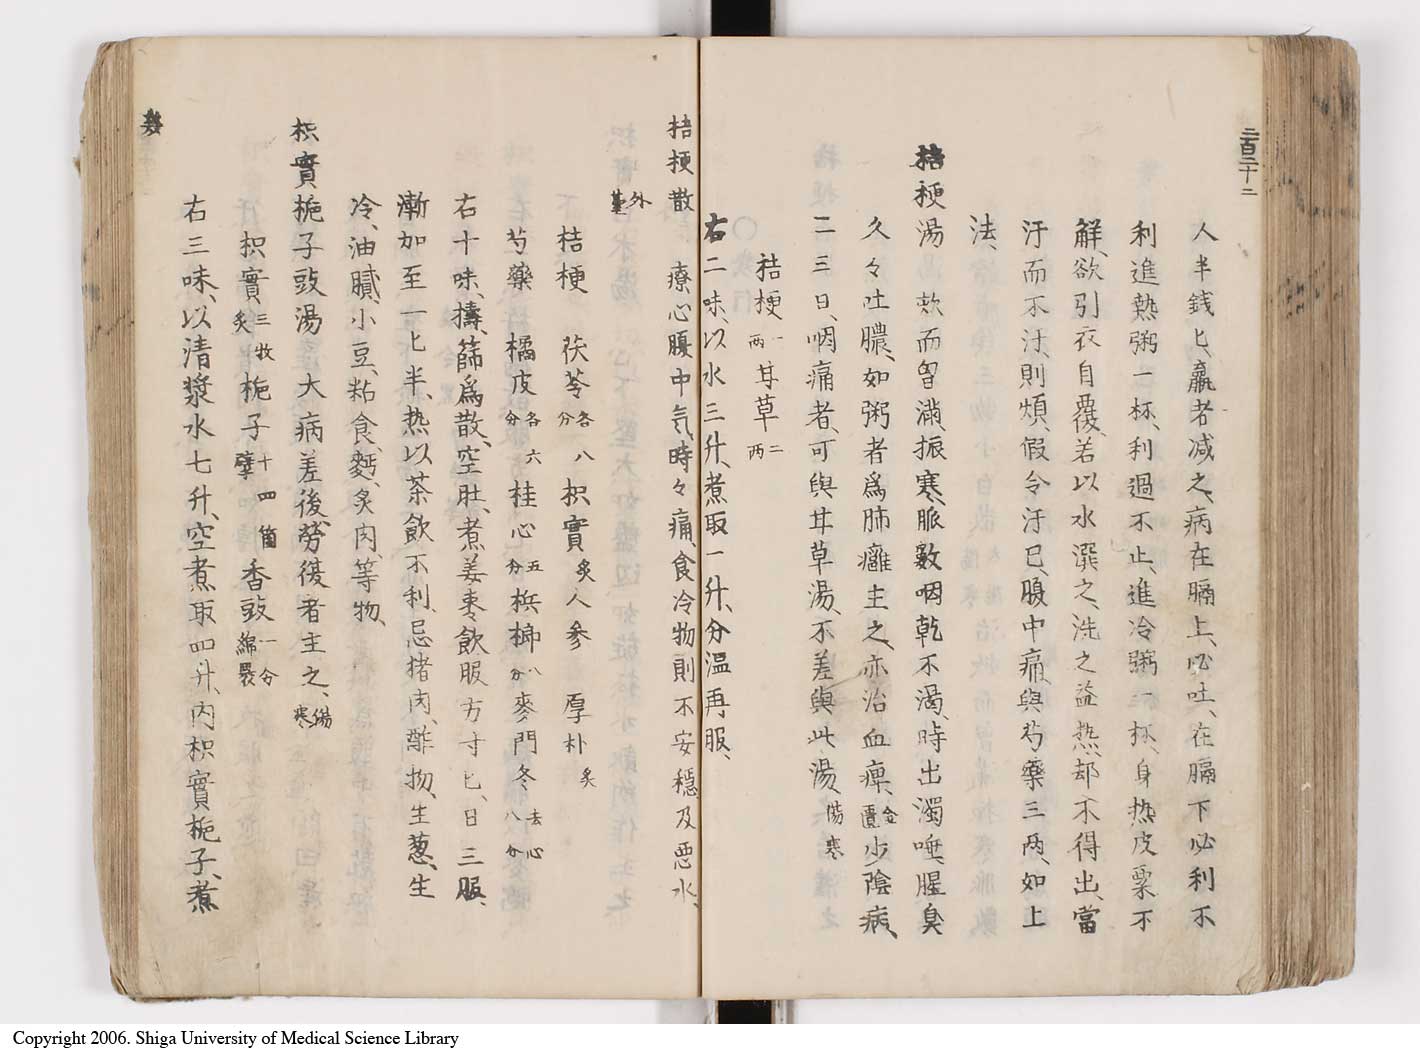 二百二十二
人半錢匕、羸者减之、病在膈上、必吐、在膈下必利不
利進熱粥一杯、利過不止、進冷粥一杯、身热皮粟不
解、欲引衣自覆、若以水潠之、洗之益热却不得出、當
汗而不汗、則煩、假令汗已、腹中痛、與芍藥三两、如上
法、
桔梗湯 欬而胷滿、振寒、脈數咽乾不渴、時出濁唾、腥臭
久々吐膿、如粥者爲肺癰主之、亦治血痺、金匱 少陰病、
二三日、咽痛者、可與甘草湯、不差與此湯、傷寒
桔梗一两 甘草二两
右二味、以水三升、煮取一升、分温再服、
桔梗散 療心腹中気、時々痛、食冷物則不安穩及悪水、
外臺
桔梗 茯苓各八分 枳實炙 人参 厚朴炙
芍藥 橘皮各六分 桂心五分 梹榔八分 麥門冬去心八分
右十味、擣、篩爲散、空肚、煮姜棗飲服方寸匕、日三服、
漸加至一匕半、热以茶飲不利、忌猪肉、酢物、生葱、生
冷、油膩、小豆、粘食、麪、炙肉、等物、
枳實梔子豉湯 大病差後、勞復者主之、傷寒
枳實三枚炙 梔子十四箇擘 香豉一合綿裹
右三味、以清漿水七升、空煮取四升、内枳實梔子、煮